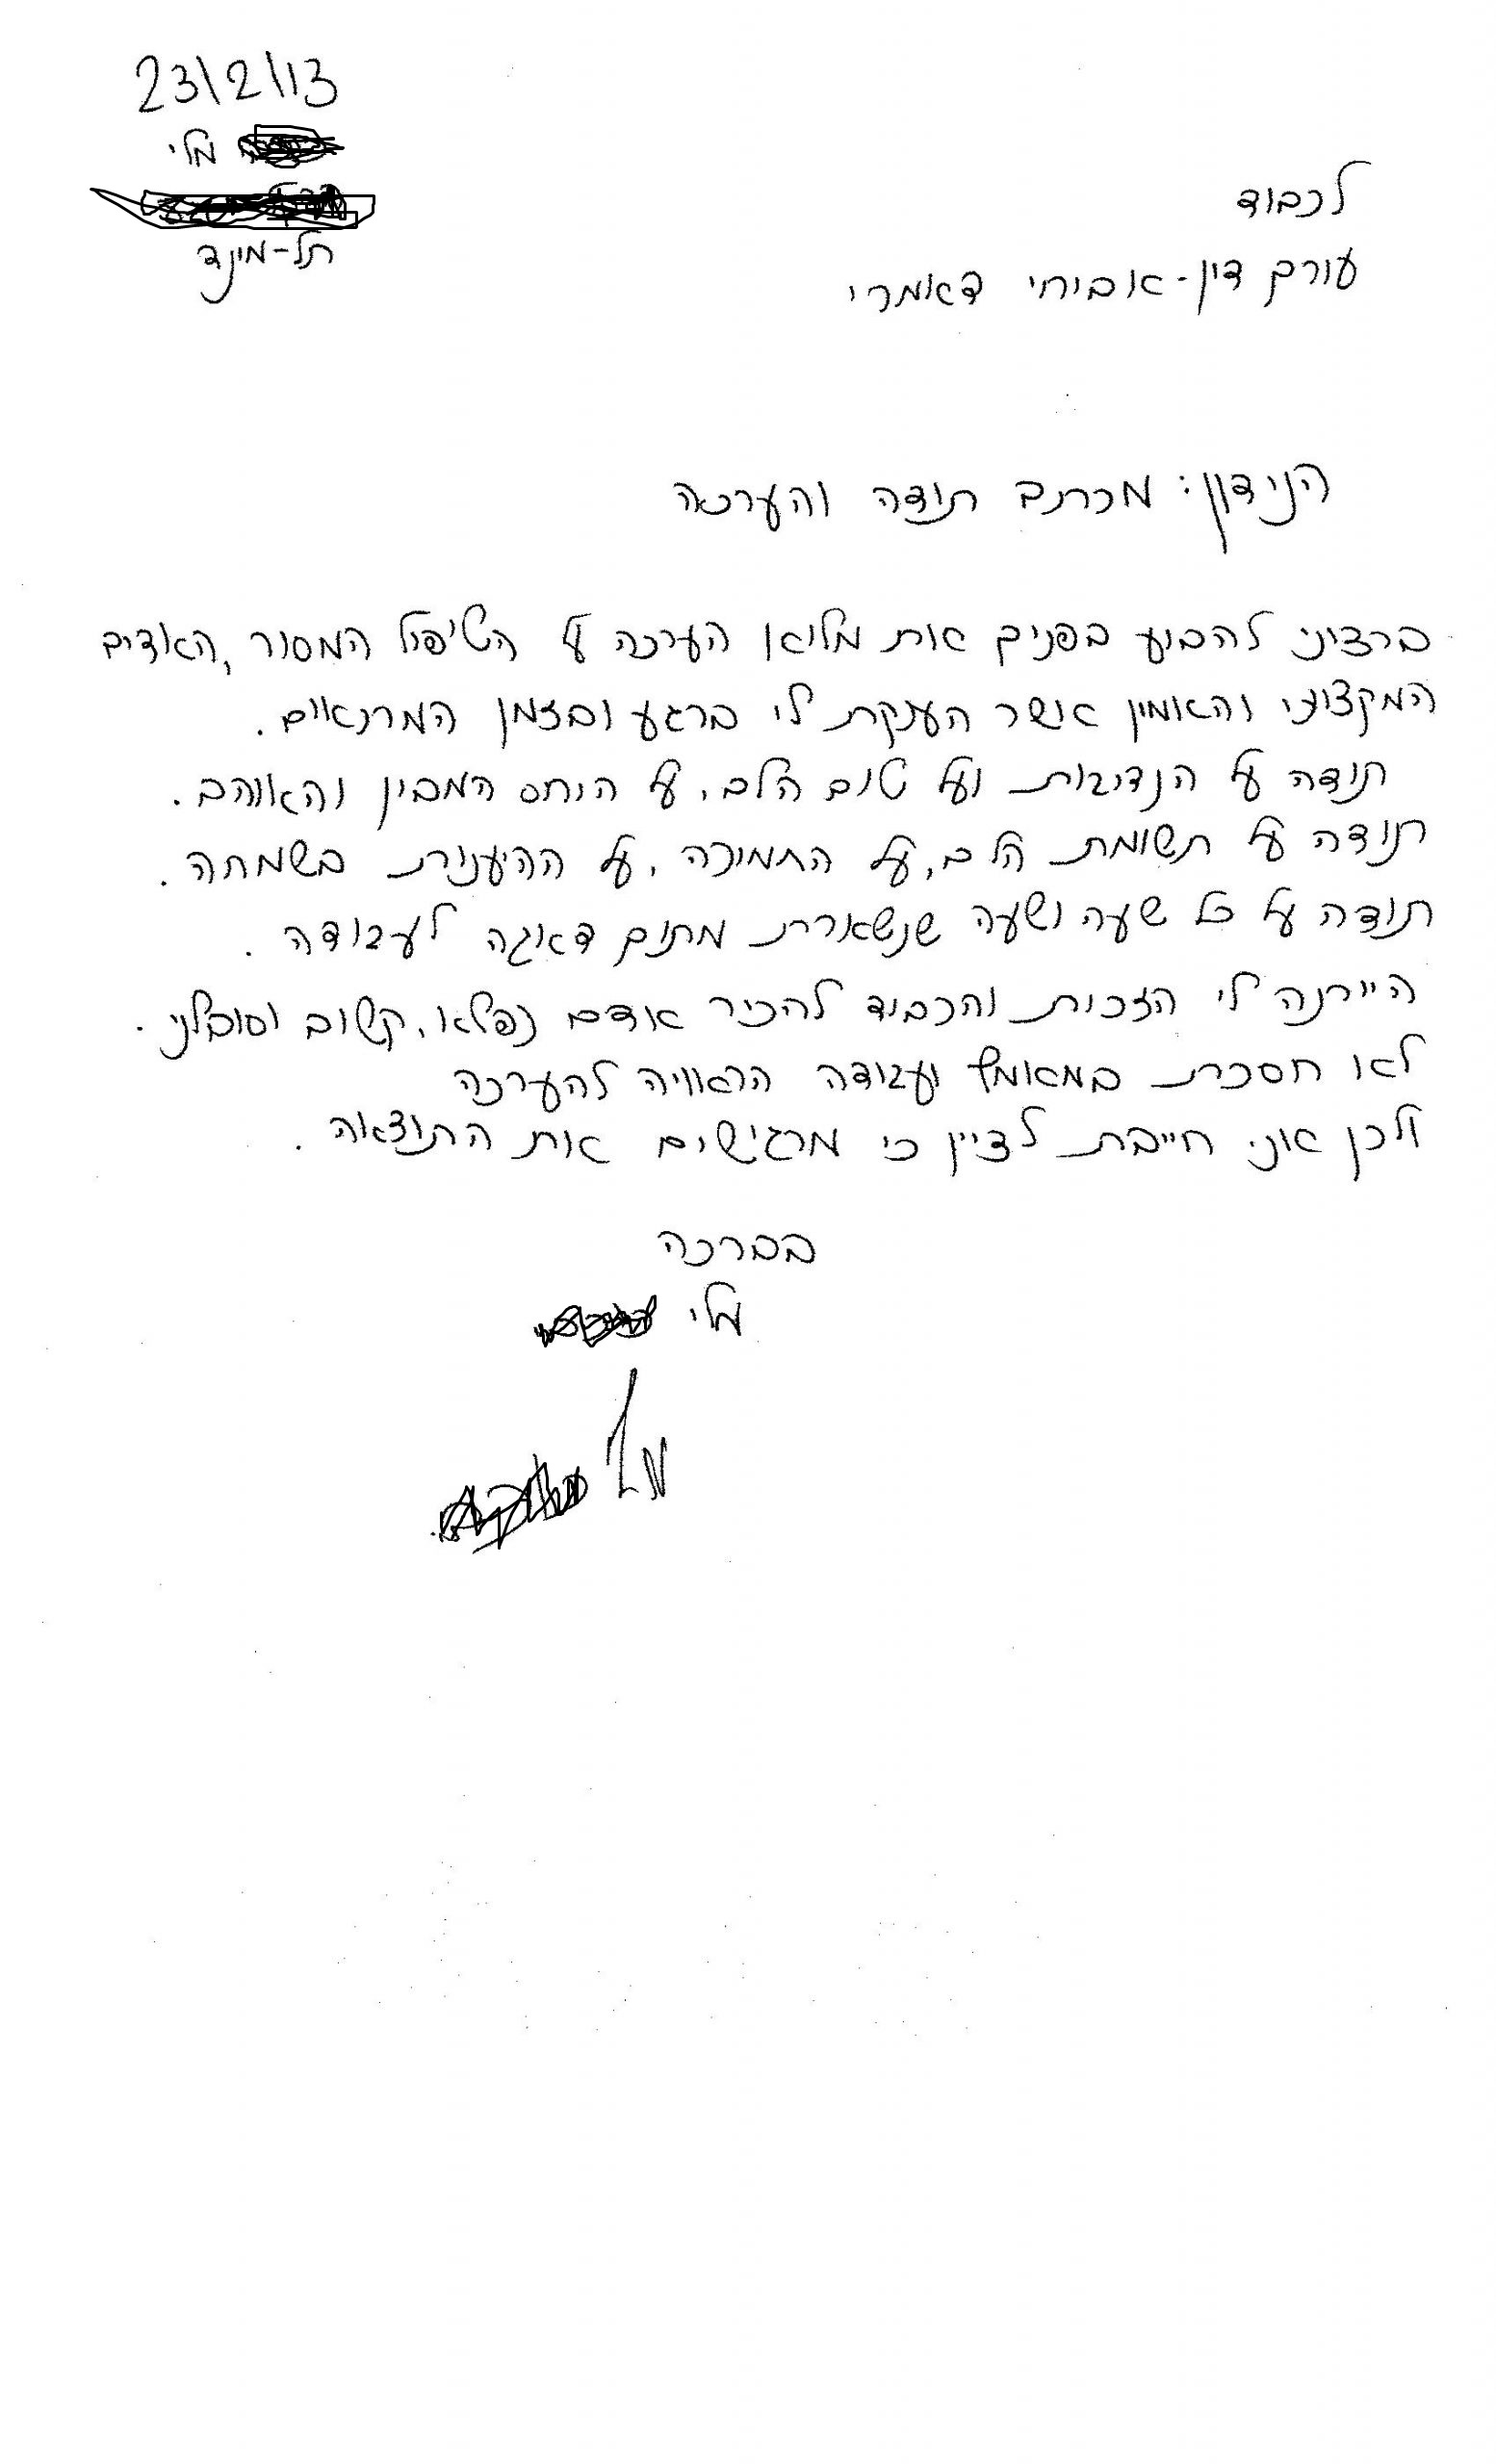 23/2/13
מלי
תל-מונד
לכבוד
עורך דין - אביחי דאמרי
הנידון: מכתב תודה והערכה
ברצוני להביע בפניך את מלוא הערכה על הטיפול המסור, האדיב
המקצועי והאמין אשר הענקת לי ברגע ובזמן המתאים.
תודה על הנדיבות ועל טוב הלב, על היחס המבין והאוהב.
תודה על תשומת הלב, על התמיכה, על ההיענות בשמחה.
תודה על כל שעה ושעה שנשארת מתוך דאגה לעבודה.
הייתה לי הזכות והכבוד להכיר אדם נפלא, קשוב וסובלני.
לא חסכת במאמץ ועבודה הראויה להערכה
ולכן אני חייבת לציין כי מרגישים את התוצאה.
בברכה
מלי